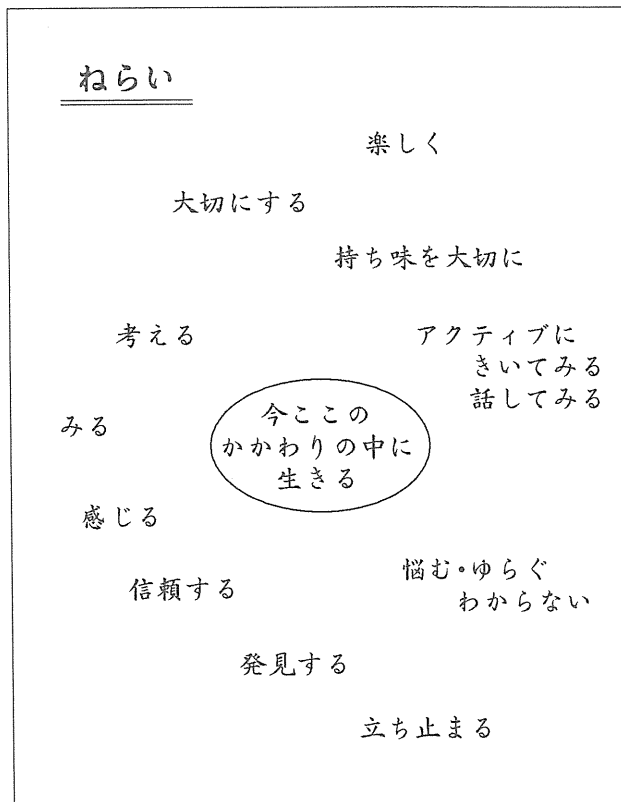 ねらい
楽しく
大切にする
持ち味を大切に
考える
アクティブに
きいてみる
話してみる
みる
今ここの
かかわりの中に
生きる
感じる
悩む・ゆらぐ
わからない
信頼する
発見する
立ち止まる